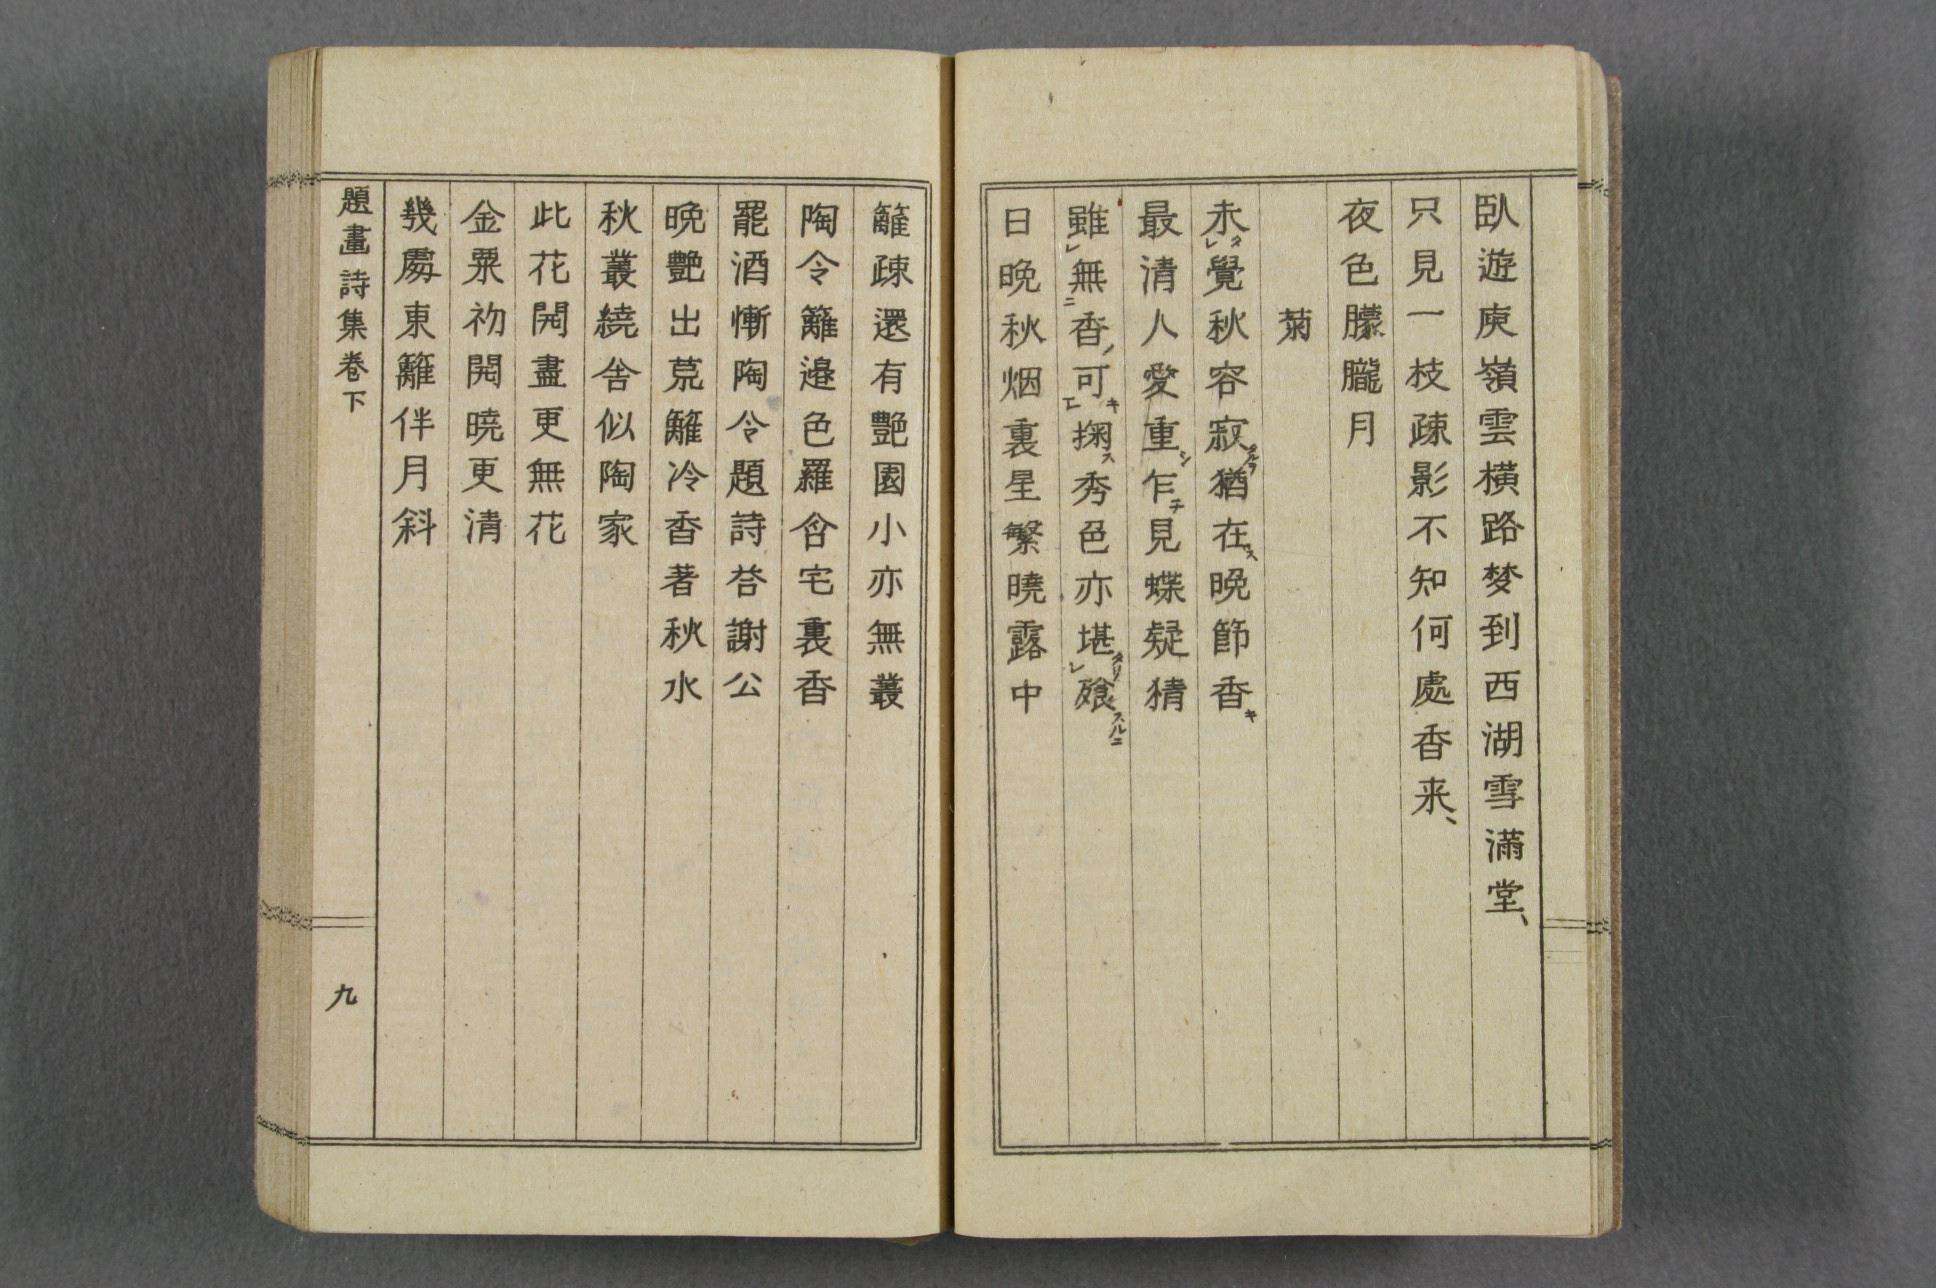 臥遊庾嶺雲橫路梦到西湖雪滿堂、
只見一枝疎影不知何處香来、
夜色朦朧月
菊
未覺秋容寂猶在晩節香
最清人愛重乍見蝶疑猜
雖無香可掬秀色亦堪飱
日晩秋烟裏星繁曉露中
籬疎還有艷園小亦無叢
陶令籬邉色羅含宅裏香
罷酒慚陶令題詩荅謝公
晩艷出荒籬冷香著秋水
秋叢繞舎似陶家
此花開盡更無花
金粟初開曉更清
幾處東籬伴月斜
題畫詩集卷下
九